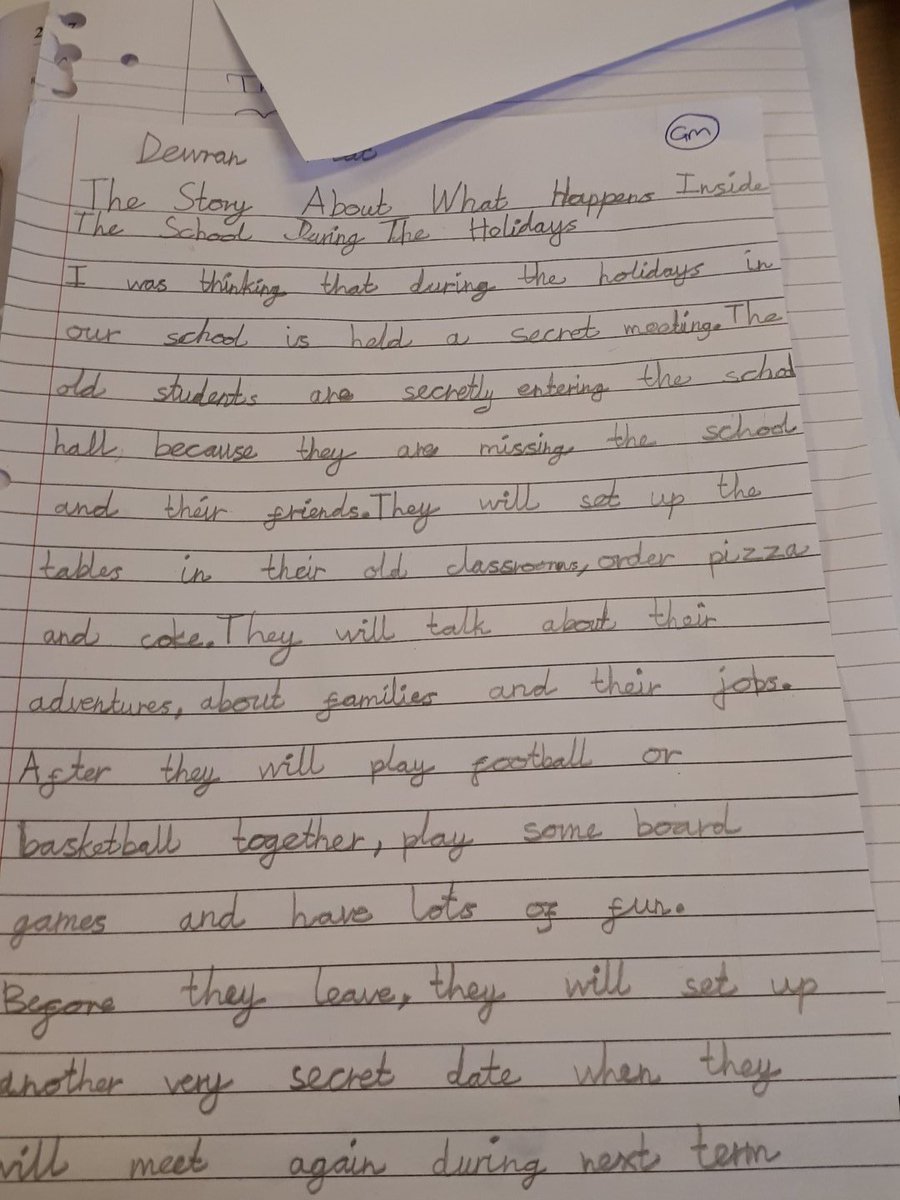 GM
Dewran
The Story About What Happens Inside
The School During The Holidays
I was thinking that during the holidays in
our school is held a secret meeting. The
old students are secretly entering the school
hall because they are missing the school
and their friends. They will set up the
tables in their old classrooms, order pizza
and coke. They will talk about their
adventures, about families and their jobs.
After they will play football or
basketball together, play some board
games and have lots of fun.
Before they leave, they will set up
another very secret date when they
will meet again during next term